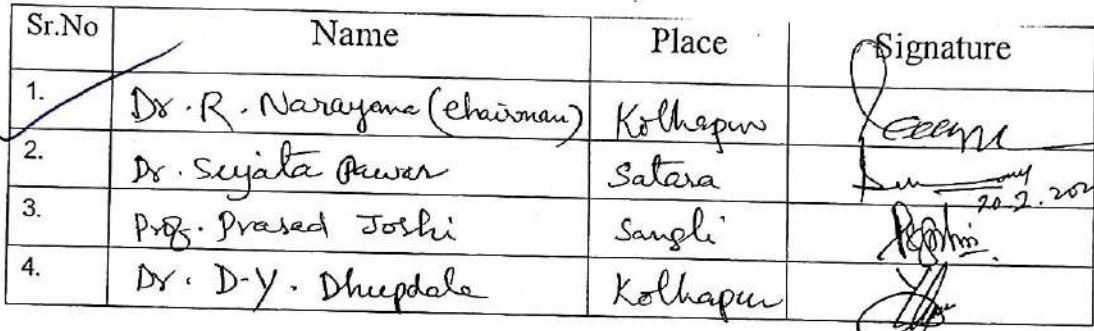 Sr.No Name Place Signature
1. Dr. R. Narayana (Chairman) Kolhapur
2. Dr. Sujata Pawar Satara
20.2.202
3. Prof. Prasad Joshi Sangli
4. Dr. D-Y. Dhupdale Kolhapur